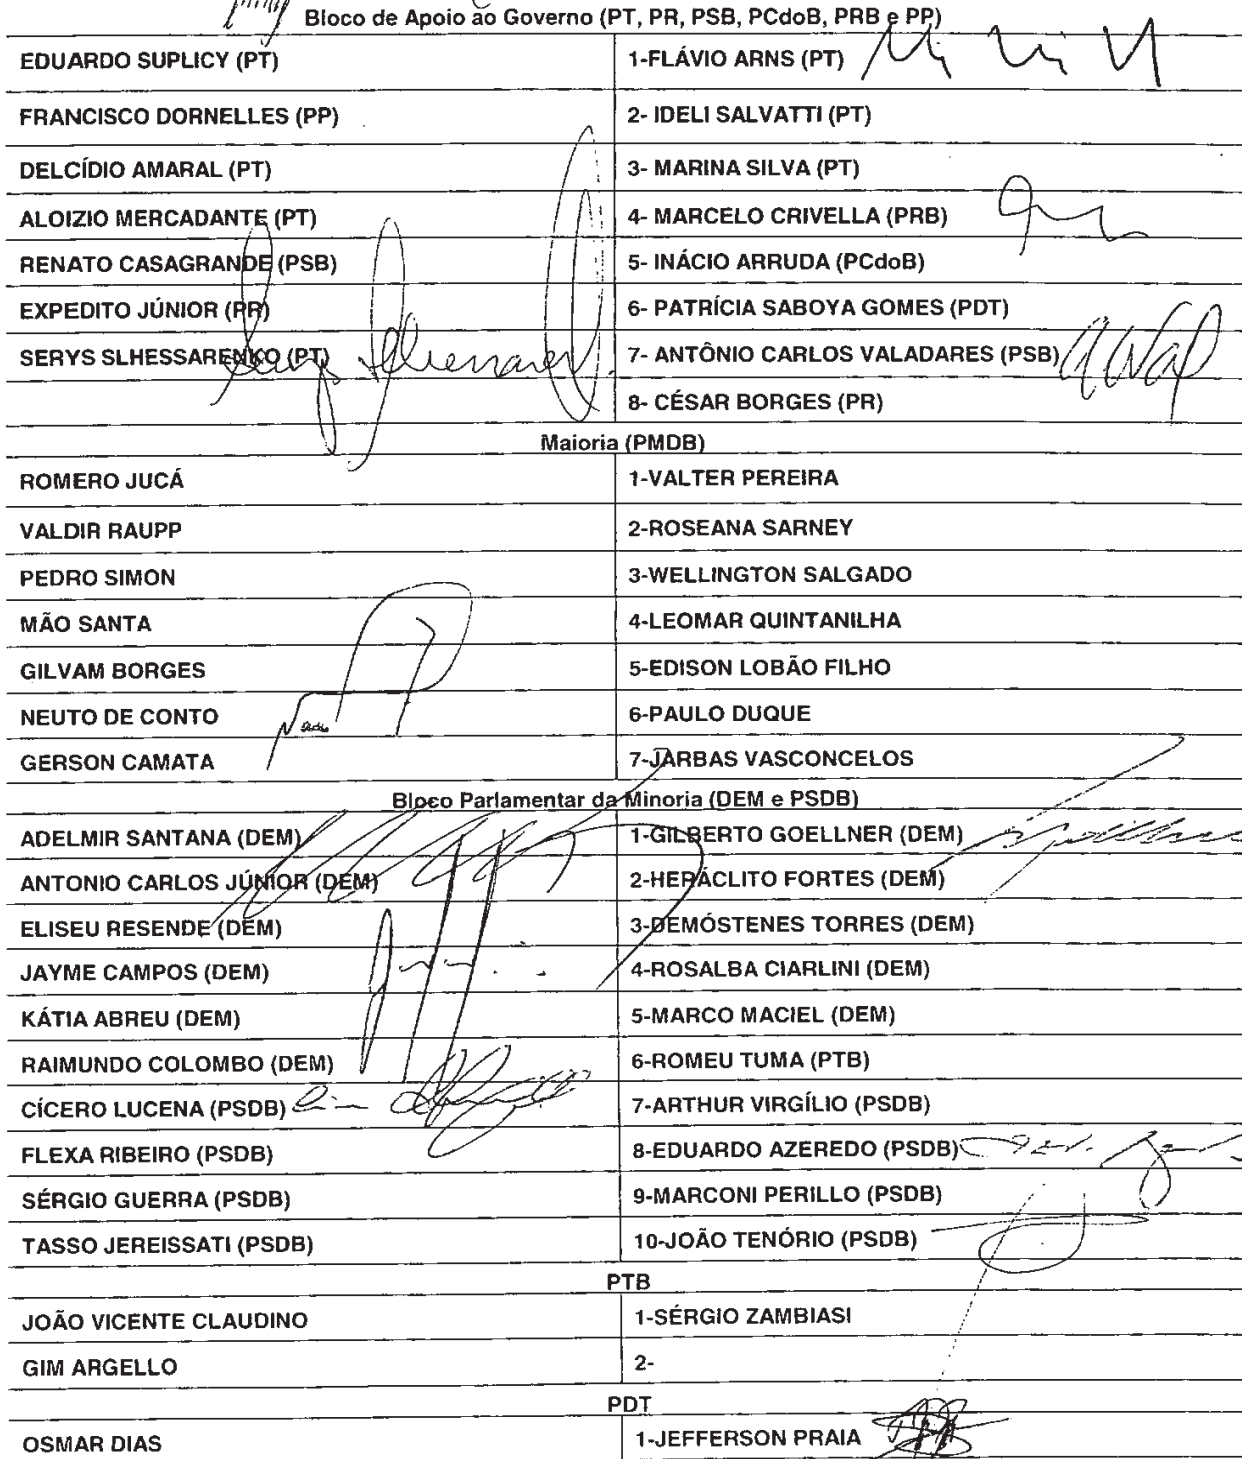 Bloco de Apoio ao Governo (PT, PR, PSB, PCdoB, PRB e PP)
EDUARDO SUPLICY (PT) 1-FLÁVIO ARNS (PT)
FRANCISCO DORNELLES (PP) 2- IDELI SALVATTI (PT)
DELCÍDIO AMARAL (PT) 3- MARINA SILVA (PT)
ALOIZIO MERCADANTE (PT) 4- MARCELO CRIVELLA (PRB)
RENATO CASAGRANDE (PSB) 5- INÁCIO ARRUDA (PCdoB)
EXPEDITO JÚNIOR (PR) 6- PATRÍCIA SABOYA GOMES (PDT)
SERYS SLHESSARENKO (PT) 7- ANTÔNIO CARLOS VALADARES (PSB)
8- CÉSAR BORGES (PR)
Maioria (PMDB)
ROMERO JUCÁ 1-VALTER PEREIRA
VALDIR RAUPP 2-ROSEANA SARNEY
PEDRO SIMON 3-WELLINGTON SALGADO
MÃO SANTA 4-LEOMAR QUINTANILHA
GILVAM BORGES 5-EDISON LOBÃO FILHO
NEUTO DE CONTO 6-PAULO DUQUE
GERSON CAMATA 7-JARBAS VASCONCELOS
Bloco Parlamentar da Minoria (DEM e PSDB)
ADELMIR SANTANA (DEM) 1-GILBERTO GOELLNER (DEM)
ANTONIO CARLOS JÚNIOR (DEM) 2-HERÁCLITO FORTES (DEM)
ELISEU RESENDE (DEM) 3-DEMÓSTENES TORRES (DEM)
JAYME CAMPOS (DEM) 4-ROSALBA CIARLINI (DEM)
KÁTIA ABREU (DEM) 5-MARCO MACIEL (DEM)
RAIMUNDO COLOMBO (DEM) 6-ROMEU TUMA (PTB)
CÍCERO LUCENA (PSDB) 7-ARTHUR VIRGÍLIO (PSDB)
FLEXA RIBEIRO (PSDB) 8-EDUARDO AZEREDO (PSDB)
SÉRGIO GUERRA (PSDB) 9-MARCONI PERILLO (PSDB)
TASSO JEREISSATI (PSDB) 10-JOÃO TENÓRIO (PSDB)
PTB
JOÃO VICENTE CLAUDINO 1-SÉRGIO ZAMBIASI
GIM ARGELLO 2-
PDT
OSMAR DIAS 1-JEFFERSON PRAIA